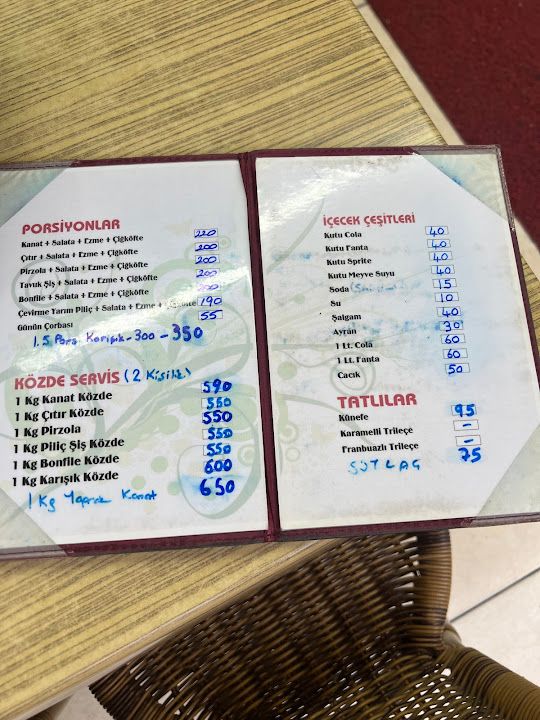 PORSİYONLAR
Kanat + Salata + Ezme + Çiğköfte 220
Çıtır + Salata + Ezme + Çiğköfte 200
Pirzola + Salata + Ezme + Çiğköfte 200
Tavuk Şiş + Salata + Ezme + Çiğköfte 200
Bonfile + Salata + Ezme + Çiğköfte 200
Çevirme Yarım Piliç + Salata + Ezme + Çiğköfte 190
Günün Çorbası 55
1.5 Pors Karışık-300-350
KÖZDE SERVİS (2 Kişilik)
1 Kg Kanat Közde 590
1 Kg Çıtır Közde 550
1 Kg Pirzola 550
1 Kg Piliç Şiş Közde 550
1 Kg Bonfile Közde 550
1 Kg Karışık Közde 600
1 Kg Kanat 650
İÇECEK ÇEŞİTLERİ
Kutu Cola 40
Kutu Fanta 40
Kutu Sprite 40
Kutu Meyve Suyu 40
Soda 15
Su 10
Şalgam 40
Ayran 30
1 Lt. Cola 60
1 Lt. Fanta 60
Cacık 50
TATLILAR
Künefe 95
Karamelli Trileçe -
Franbuazlı Trileçe -
SÜTLAÇ 75